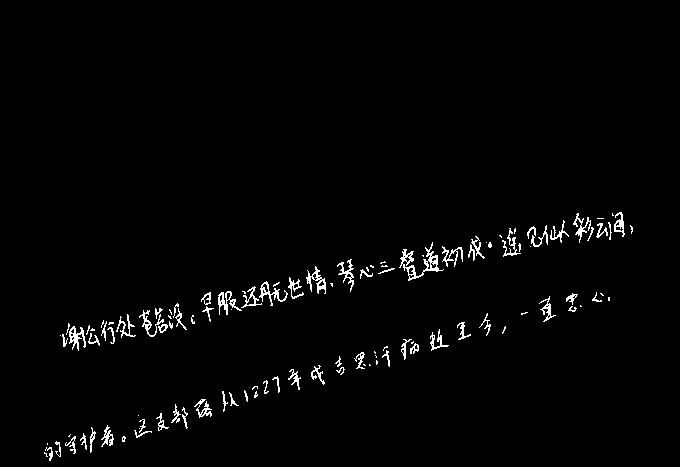 谢公行处苍苔没。早服还丹无世情,琴心三叠道初成。遥见仙人彩云间,
的守护者。这支部落从1227年成吉思汗病逝至今,一直忠心